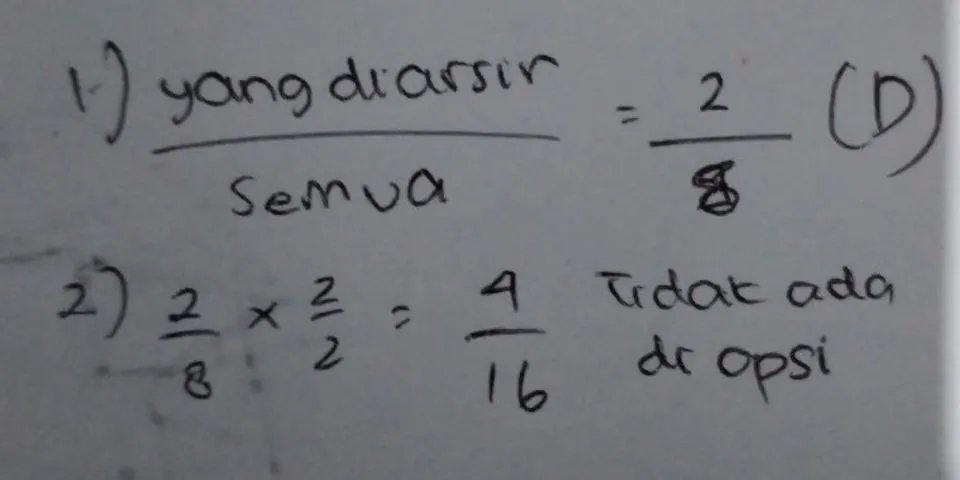 1.) yang diarsir / semua = 2/8 (D)
2) 2/8 x 2/2 = 4/16 Tidak ada
di opsi